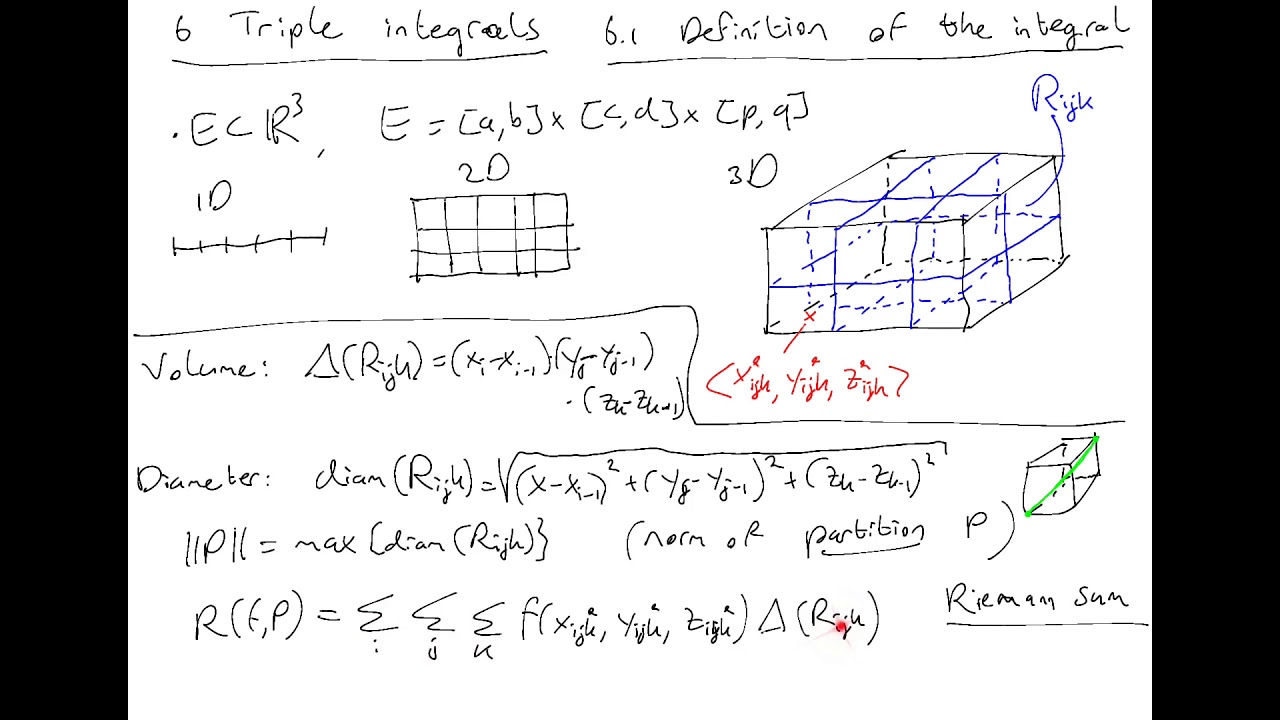 6 Triple integrals 6.1 Definition of the integral
• E ⊂ ℝ³, E = [a,b] × [c,d] × [p,q]
1D 2D 3D Rijk
Volume: Δ(Rijk) = (xi - xi-1)·(yj - yj-1)
·(zk - zk-1)
<x*ijk, y*ijk, z*ijk>
Diameter: diam(Rijk) = √((x - xi-1)² + (yj - yj-1)² + (zk - zk-1)²)
||P|| = max{diam(Rijk)} (norm of partition P)
R(f,P) = Σi Σj Σk f(xijk*, yijk*, zijk*) Δ(Rijk) Riemann sum